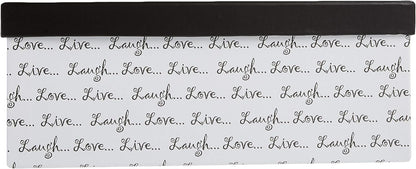 Love... Live... Laugh... Love... Live... Laugh... Love... Live...
Live... Laugh... Love... Live... Laugh... Love... Live... Laugh...
Laugh... Love... Live... Laugh... Love... Live... Laugh... Love...
Love... Live... Laugh... Love... Live... Laugh... Love... Live...
Laugh... Love... Live... Laugh... Love... Live... Laugh...